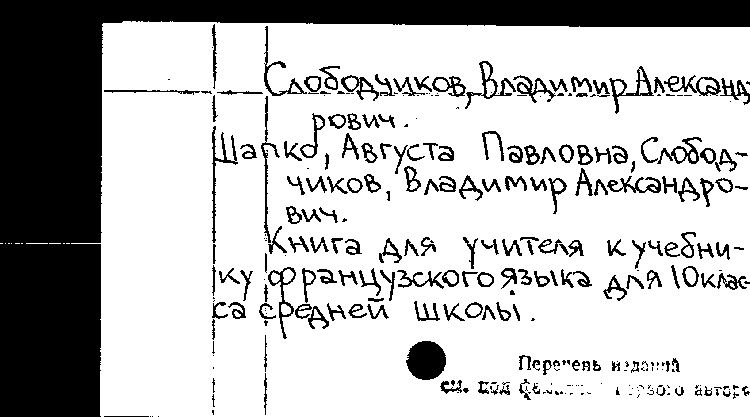 Слободчиков, Владимир Александ-
рович.
Шапко, Августа Павловна, Слобод-
чиков, Владимир Александро-
вич.
Книга для учителя к учебни-
ку французского языка для 10 клас-
са средней школы.
Перечень изданий
см. под фамилией первого автора